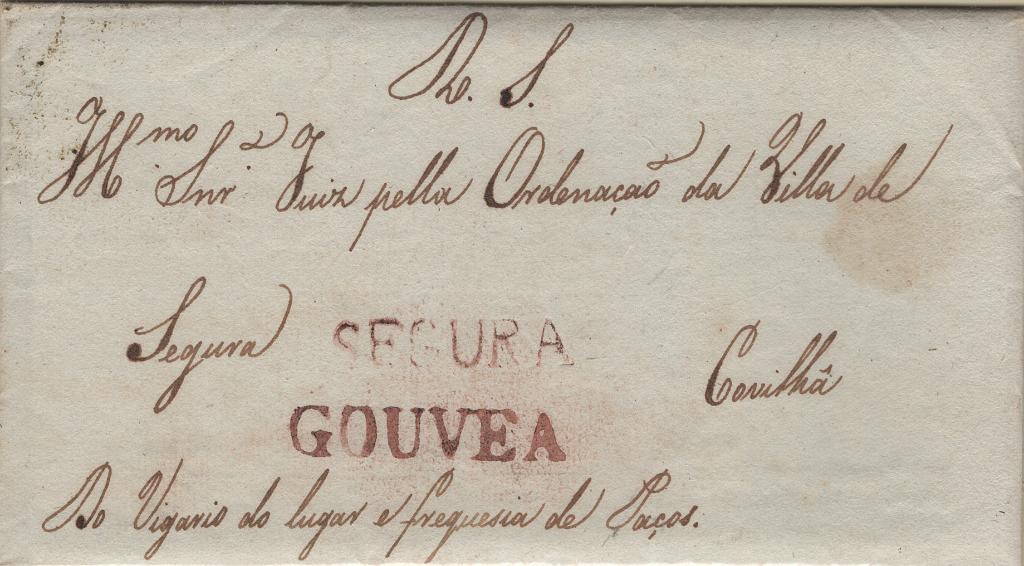 R. S.
Illmo Snr Juiz pella Ordenação da Villa de
Segura
SEGURA
Covilhã
GOUVEA
Do Vigario do lugar e freguesia de Paços.